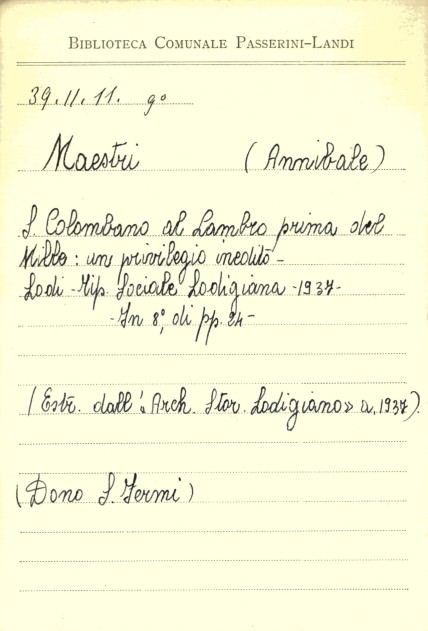 BIBLIOTECA COMUNALE PASSERINI-LANDI
39. II. 11. 9°
Maestri (Annibale)
S. Colombano al Lambro prima del
Mille: un privilegio inedito -
Lodi - Tip. Sociale Lodigiana - 1937 -
- In 8°, di pp. 24 -
(Estr. dall' "Arch. Stor. Lodigiano» a. 1937).
(Dono S. Fermi)